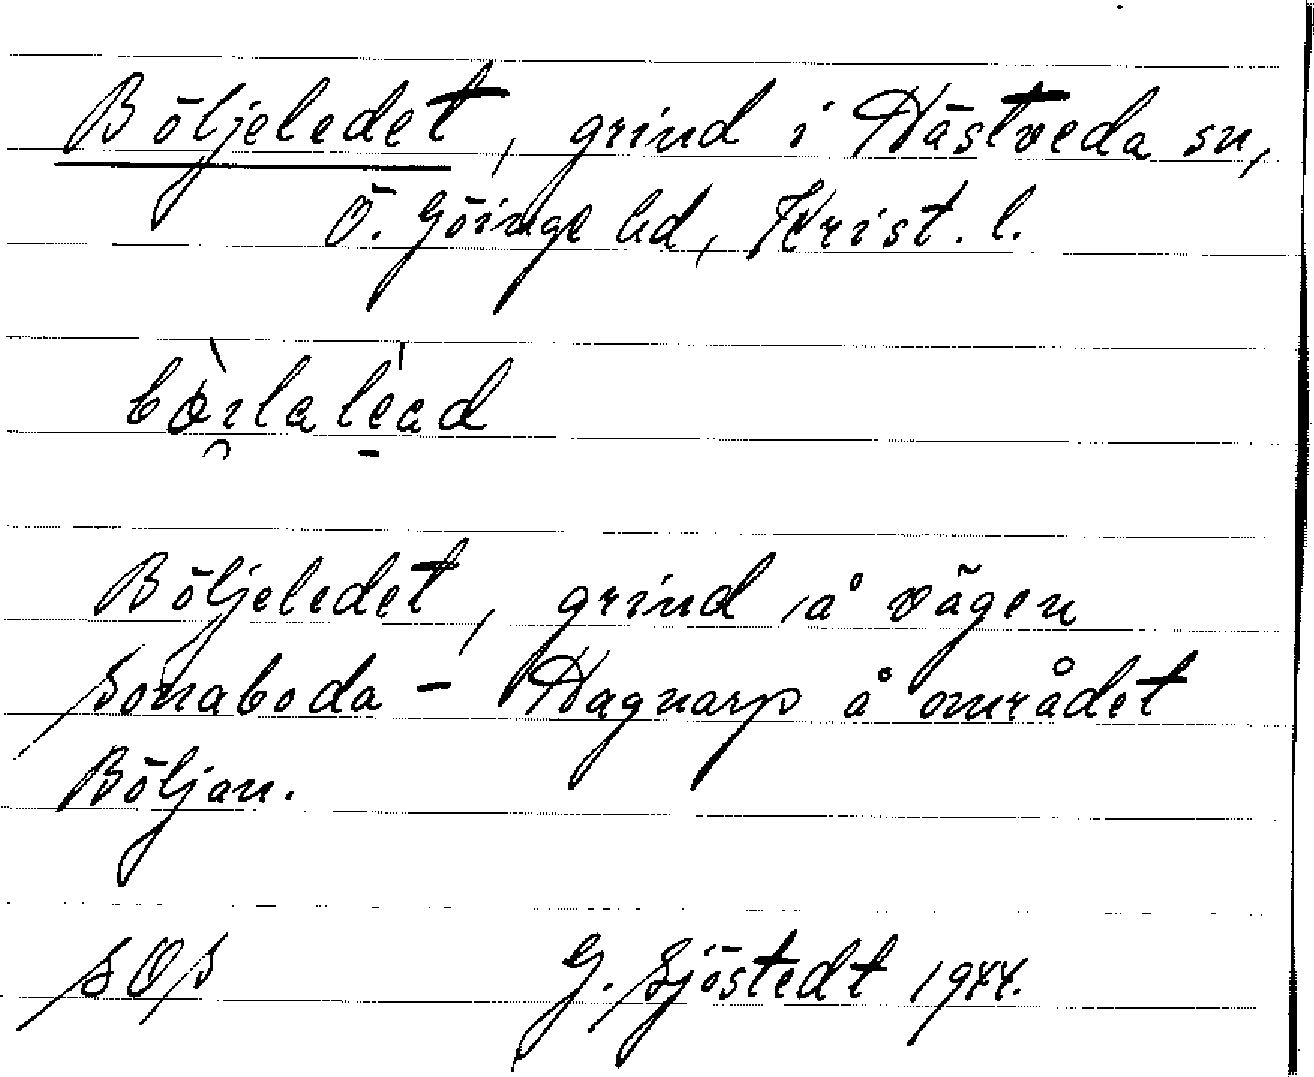 Böljeledet, grind i Hästveda sn,
Ö. Göinge hd, Krist. l.
Böljeledet, grind å vägen
Sönaboda - Hagnarp å området
Böljan.
SOS G. Sjöstedt 1944.